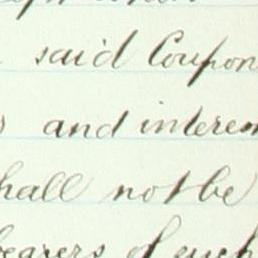 said Coupon
and interes
hall not be
bearers of such